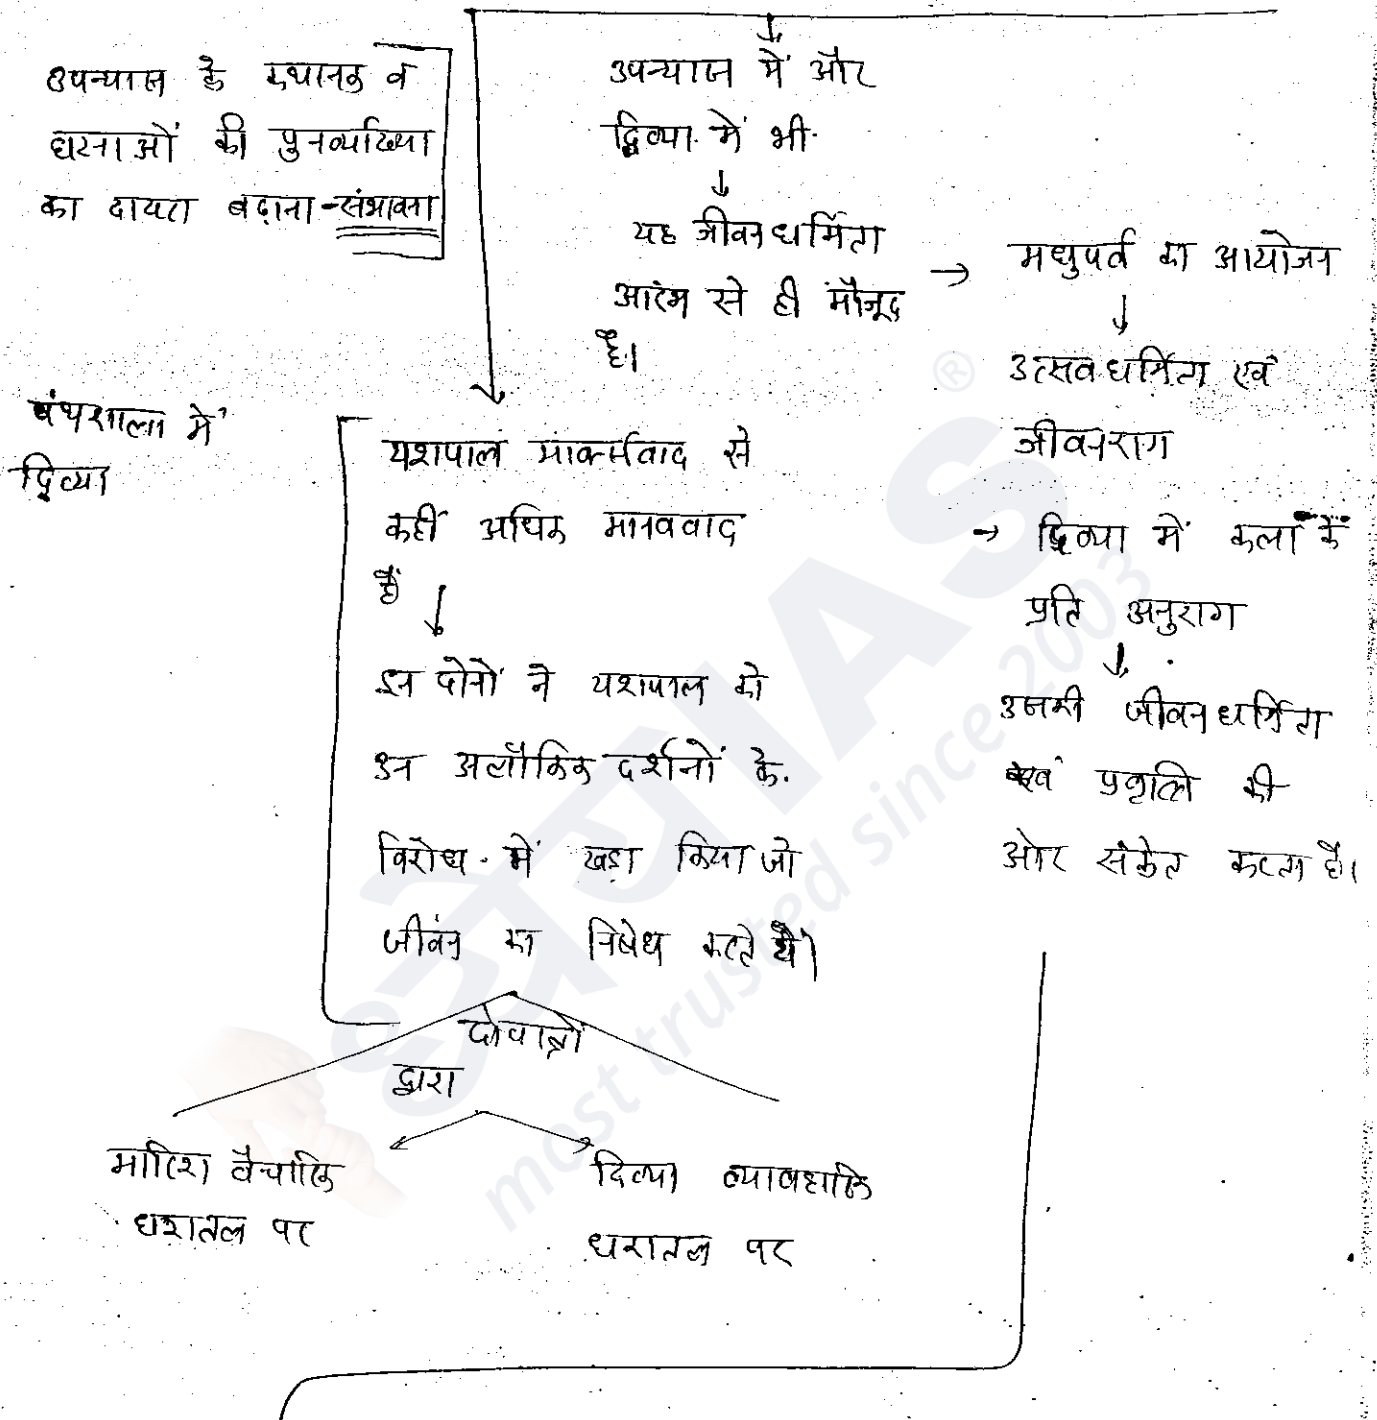 उपन्यास के कथानक व
घटनाओं की पुनर्व्याख्या
का दायरा बढ़ाना - संभावना
उपन्यास में और
दिव्या में भी
↓
यह जीवनधर्मिता
आरंभ से ही मौजूद
है।
→ मधुपर्व का आयोजन
↓
उत्सवधर्मिता एवं
जीवनराग
→ दिव्या में कला के
प्रति अनुराग
↓
उसकी जीवनधर्मिता
एवं प्रवृत्ति की
ओर संकेत करता है।
पंथशाला में
दिव्या
यशपाल मार्क्सवाद से
कहीं अधिक मानववाद
हैं ↓
इन दोनों ने यशपाल को
उन अलौकिक दर्शनों के
विरोध में खड़ा किया जो
जीवन का निषेध करते थे।
दो पात्रों
द्वारा
मारिश वैचारिक
धरातल पर
दिव्या व्यावहारिक
धरातल पर
ध्येय IAS ®
most trusted since 2003